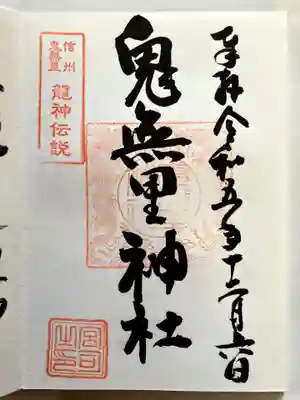 奉拝 令和五年十二月六日
鬼無里神社
信州
鬼無里
龍神伝説
宮司之印